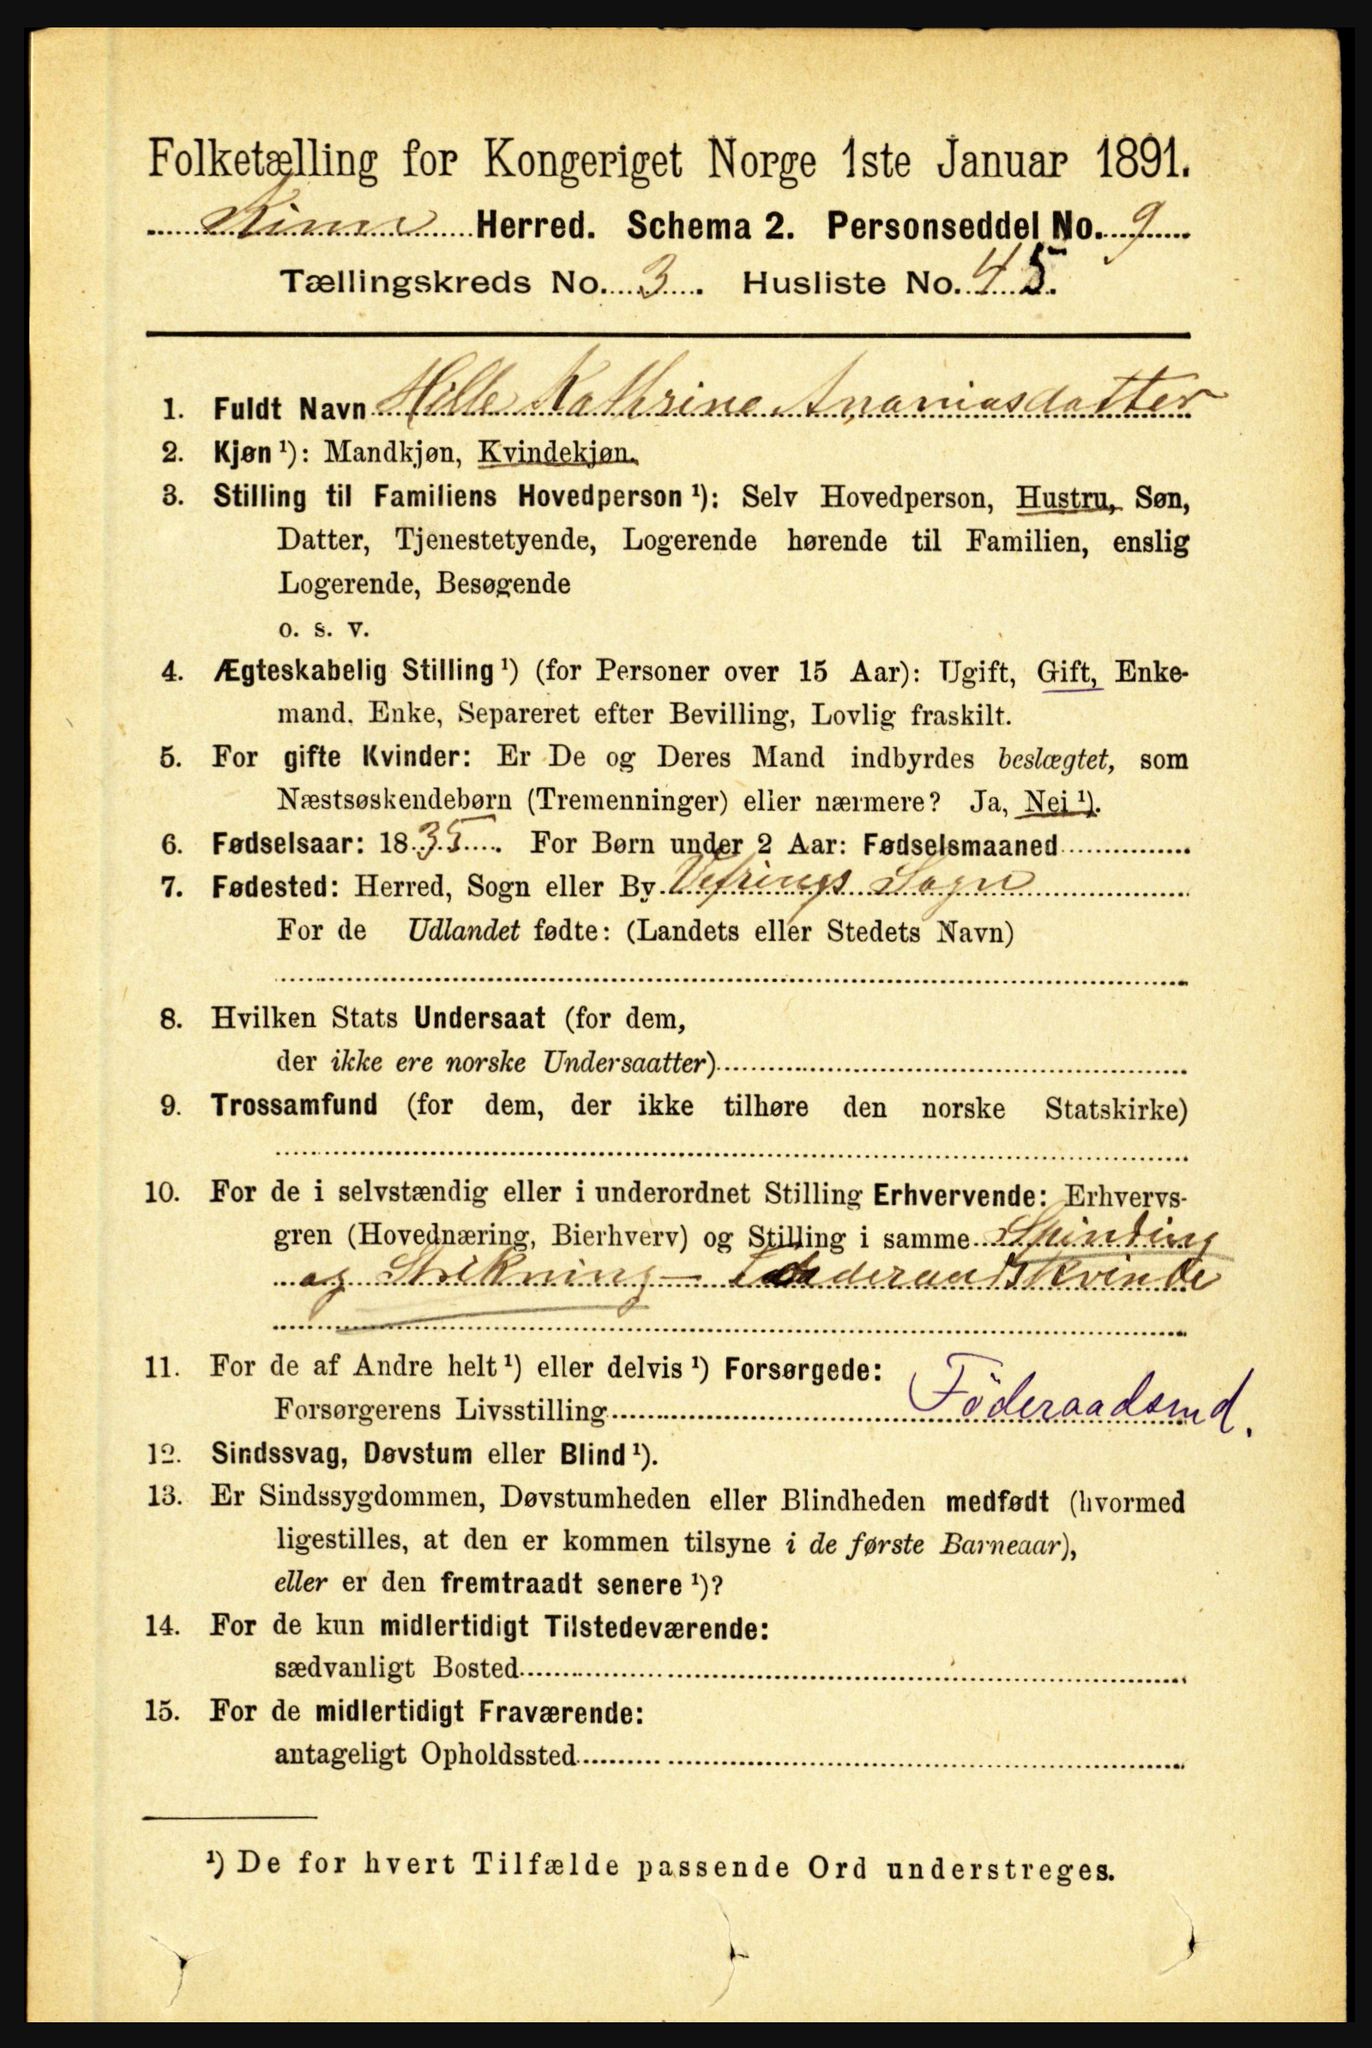 Folketælling for Kongeriget Norge 1ste Januar 1891.
Kinn Herred. Schema 2. Personseddel No. 9
Tællingskreds No. 3. Husliste No. 45.
1. Fuldt Navn Hille Kathrine Ananiasdatter
2. Kjøn ¹): Mandkjøn, Kvindekjøn.
3. Stilling til Familiens Hovedperson ¹): Selv Hovedperson, Hustru, Søn,
Datter, Tjenestetyende, Logerende hørende til Familien, enslig
Logerende, Besøgende
o. s. v.
4. Ægteskabelig Stilling ¹) (for Personer over 15 Aar): Ugift, Gift, Enke-
mand, Enke, Separeret efter Bevilling, Lovlig fraskilt.
5. For gifte Kvinder: Er De og Deres Mand indbyrdes beslægtet, som
Næstsøskendebørn (Tremenninger) eller nærmere? Ja, Nei ¹).
6. Fødselsaar: 1835. For Børn under 2 Aar: Fødselsmaaned
7. Fødested: Herred, Sogn eller By Vefrings Sogn
For de Udlandet fødte: (Landets eller Stedets Navn)
8. Hvilken Stats Undersaat (for dem,
der ikke ere norske Undersaatter)
9. Trossamfund (for dem, der ikke tilhøre den norske Statskirke)
10. For de i selvstændig eller i underordnet Stilling Erhvervende: Erhvervs-
gren (Hovednæring, Bierhverv) og Stilling i samme Spinding
og Strikning - Föderaadskvinde
11. For de af Andre helt ¹) eller delvis ¹) Forsørgede:
Forsørgerens Livsstilling Föderaadsmd.
12. Sindssvag, Døvstum eller Blind ¹).
13. Er Sindssygdommen, Døvstumheden eller Blindheden medfødt (hvormed
ligestilles, at den er kommen tilsyne i de første Barneaar),
eller er den fremtraadt senere ¹)?
14. For de kun midlertidigt Tilstedeværende:
sædvanligt Bosted
15. For de midlertidigt Fraværende:
antageligt Opholdssted
¹) De for hvert Tilfælde passende Ord understreges.